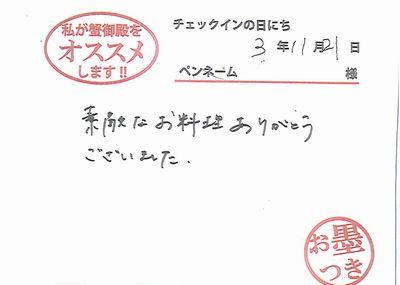 私が蟹御殿を
オススメ
します!!
チェックインの日にち
3年11月21日
ペンネーム 様
素敵なお料理ありがとう
ございました.
お墨
つき